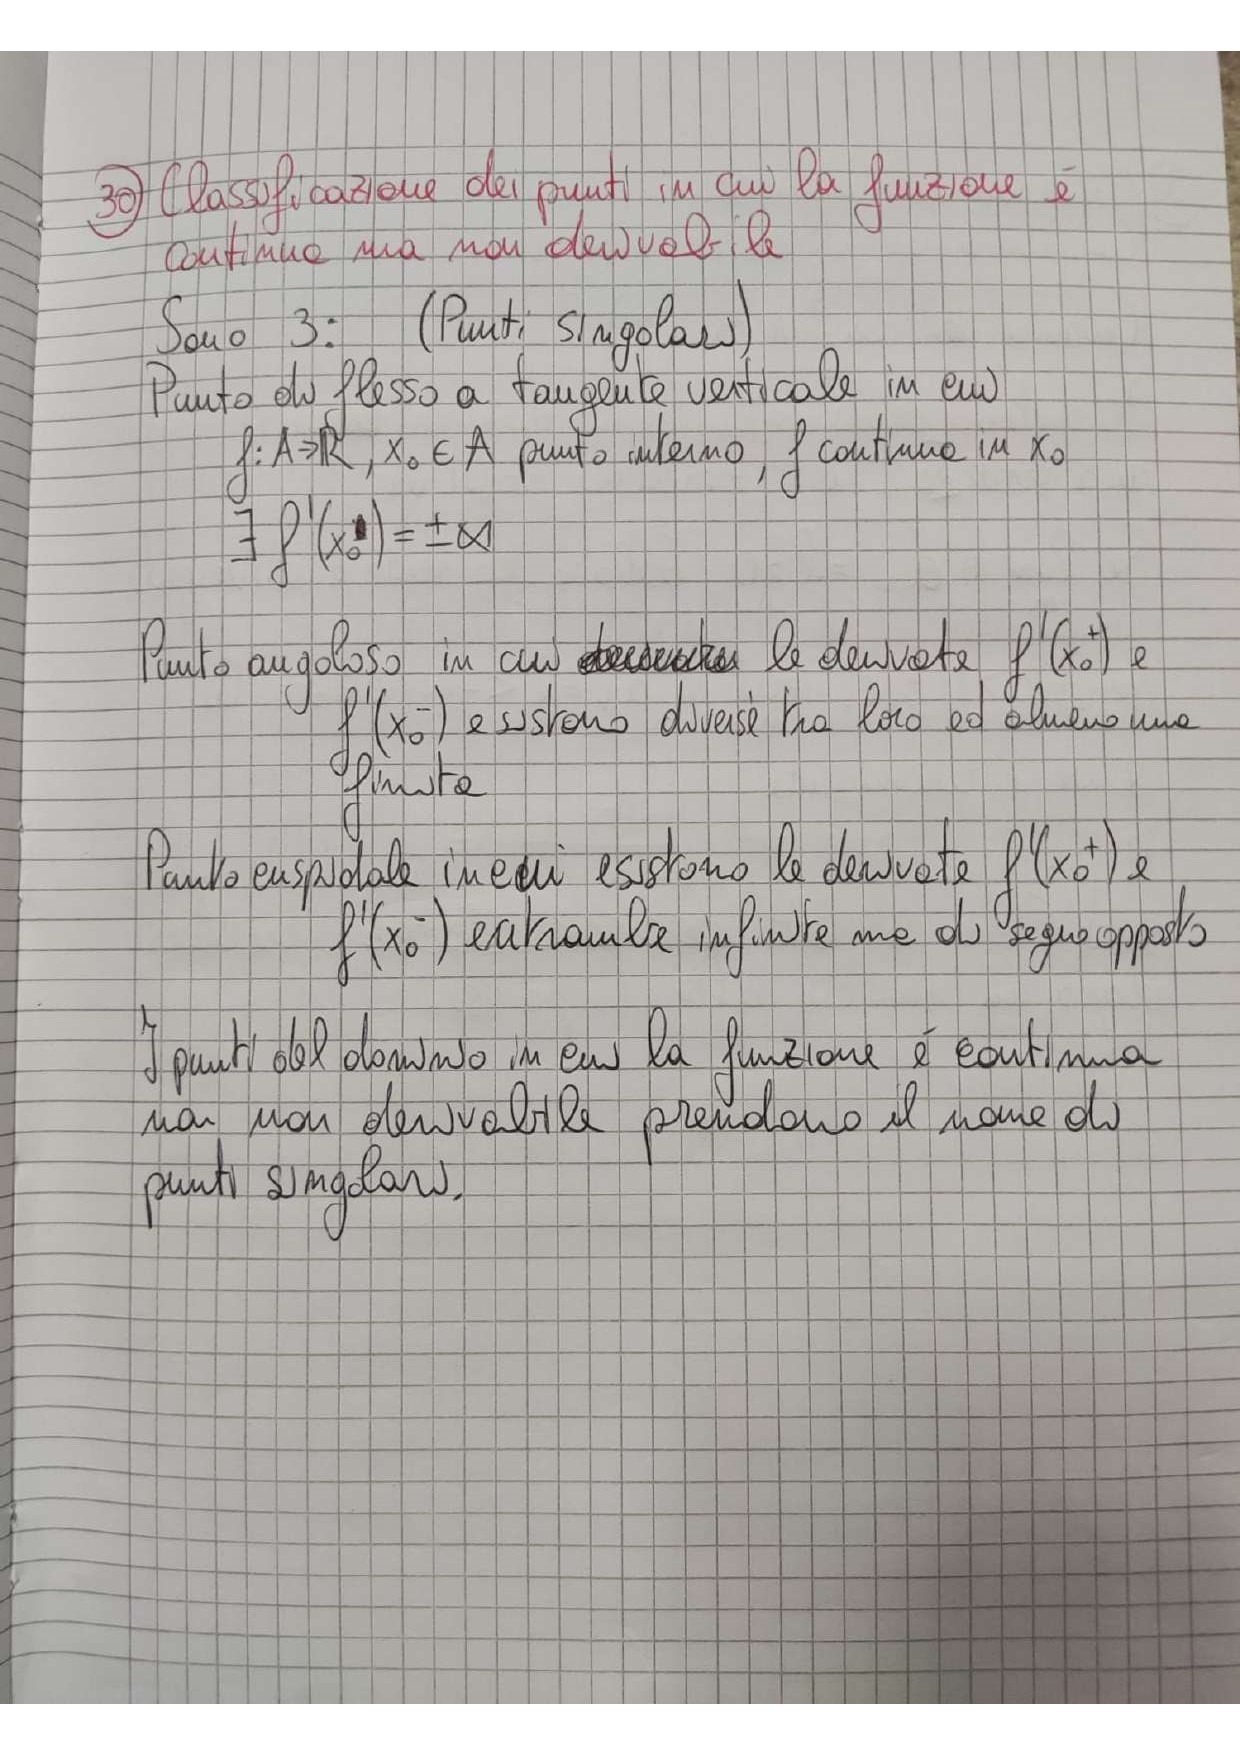 30) Classificazione dei punti in cui la funzione é
continua ma non derivabile
Sono 3: (Punti singolari)
Punto di flesso a tangente verticale in cui
f: A→ℝ, x₀ ∈ A punto interno, f continua in x₀
∃ f'(x₀) = ±∞
Punto angoloso in cui le derivate f'(x₀⁺) e
f'(x₀⁻) esistono diverse tra loro ed almeno una
finita
Punto cuspidale in cui esistono le derivate f'(x₀⁺) e
f'(x₀⁻) entrambe infinite ma di segno opposto
I punti del dominio in cui la funzione é continua
ma non derivabile prendono il nome di
punti singolari.